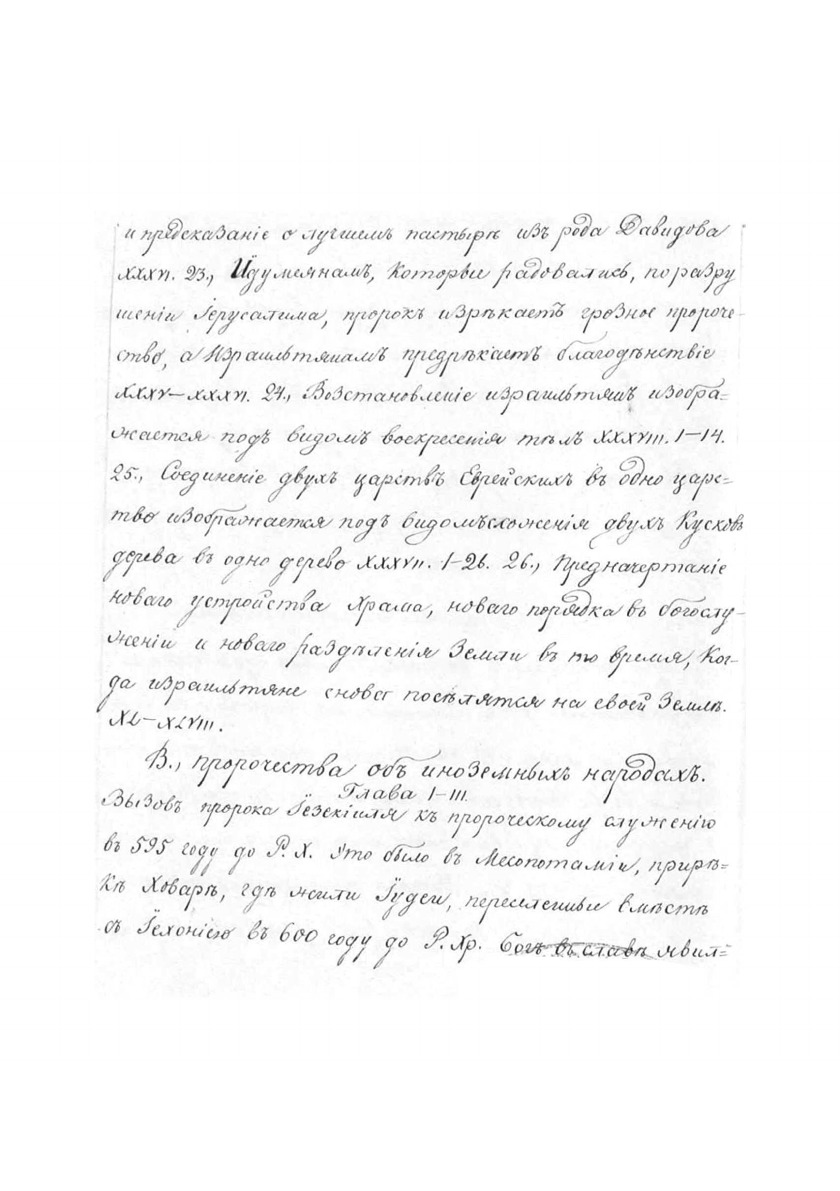 и предсказаніе о лучшемъ пастырѣ изъ рода Давидова
XXXVI. 23., Идумеянамъ, которые радовались, по разру
шеніи Іерусалима, пророкъ изрѣкаетъ грозное пророче-
ство, а Израильтянамъ предрѣкаетъ благодѣнствіе
XXXV–XXXVI. 24., Возстановленіе израильтянъ изобра=
жается подъ видомъ воскресенія тѣлъ XXXVIII. 1–14.
25., Соединеніе двухъ царствъ Еврейскихъ въ одно царс=
тво изображается подъ видомъ сложенія двухъ кусковъ
дерева въ одно дерево XXXVII. 1–26. 26., Предначертаніе
новаго устройства храма, новаго порядка въ богослу-
женіи и новаго раздѣленія земли въ то время, ког-
да израильтяне снова поселятся на своей землѣ.
XL–XLVIII.
В., пророчества объ иноземныхъ народахъ.
Глава I–III.
Вызовъ пророка Іезекіиля къ пророческому служенію
въ 595 году до Р. Х. Это было въ Месопотаміи, при рѣ=
кѣ Ховарѣ, гдѣ жили Іудеи, переселенные вмѣстѣ
съ Іехоніею въ 600 году до Р. Хр. Богъ въ славѣ явил=